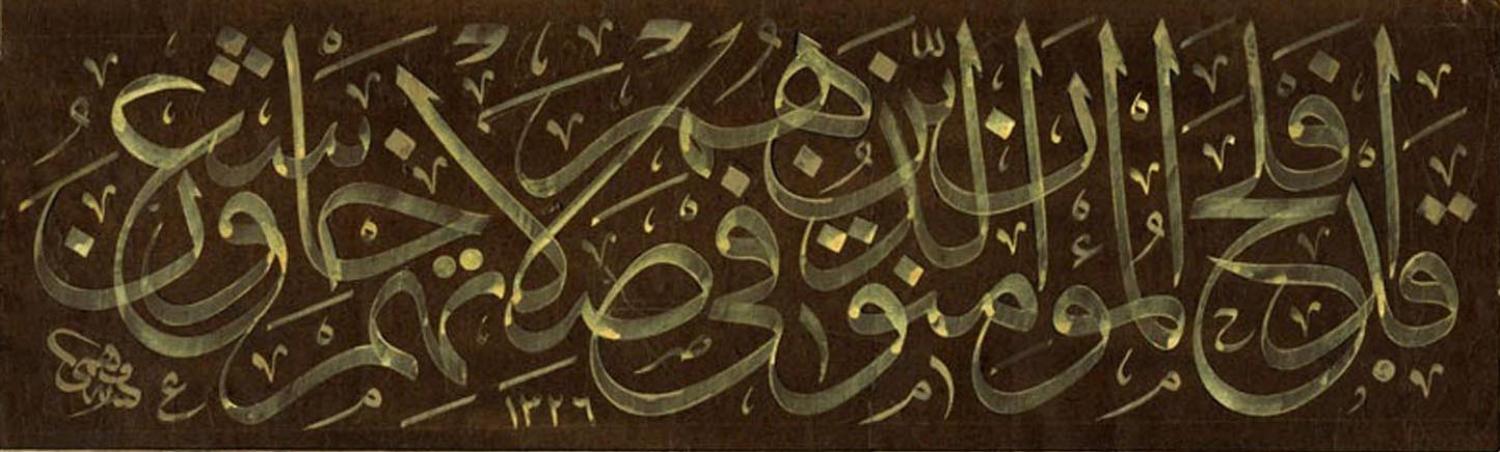 قد افلح المؤمنون الذين هم في صلاتهم خاشعون
١٣٢٦